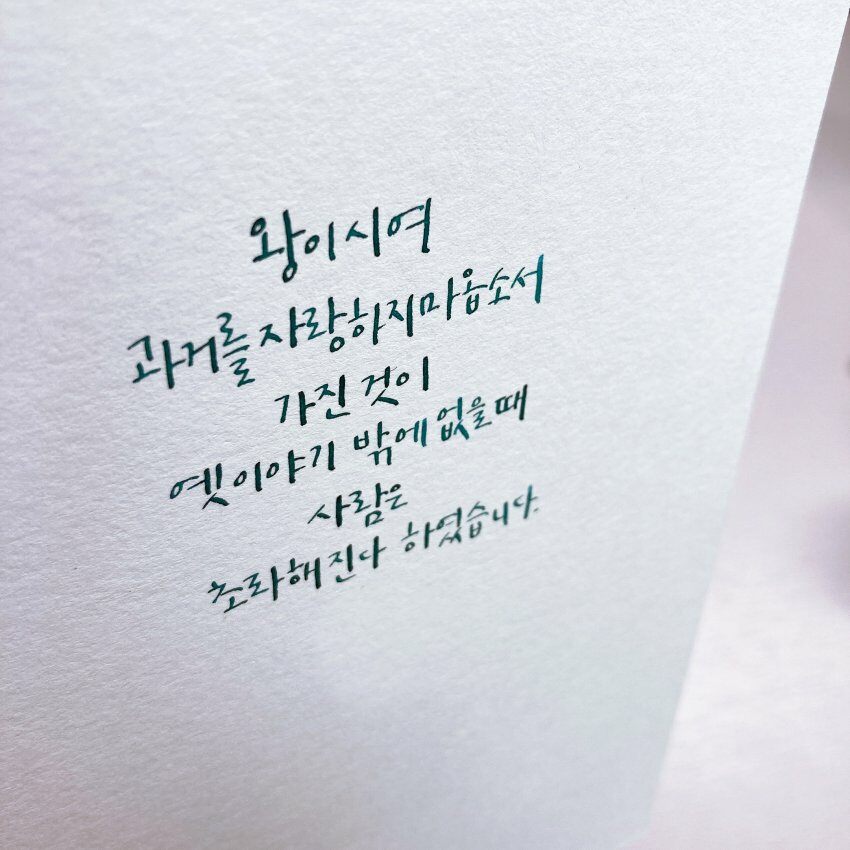 왕이시여
과거를 자랑하지마옵소서
가진 것이
옛이야기 밖에 없을 때
사람은
초라해진다 하였습니다.